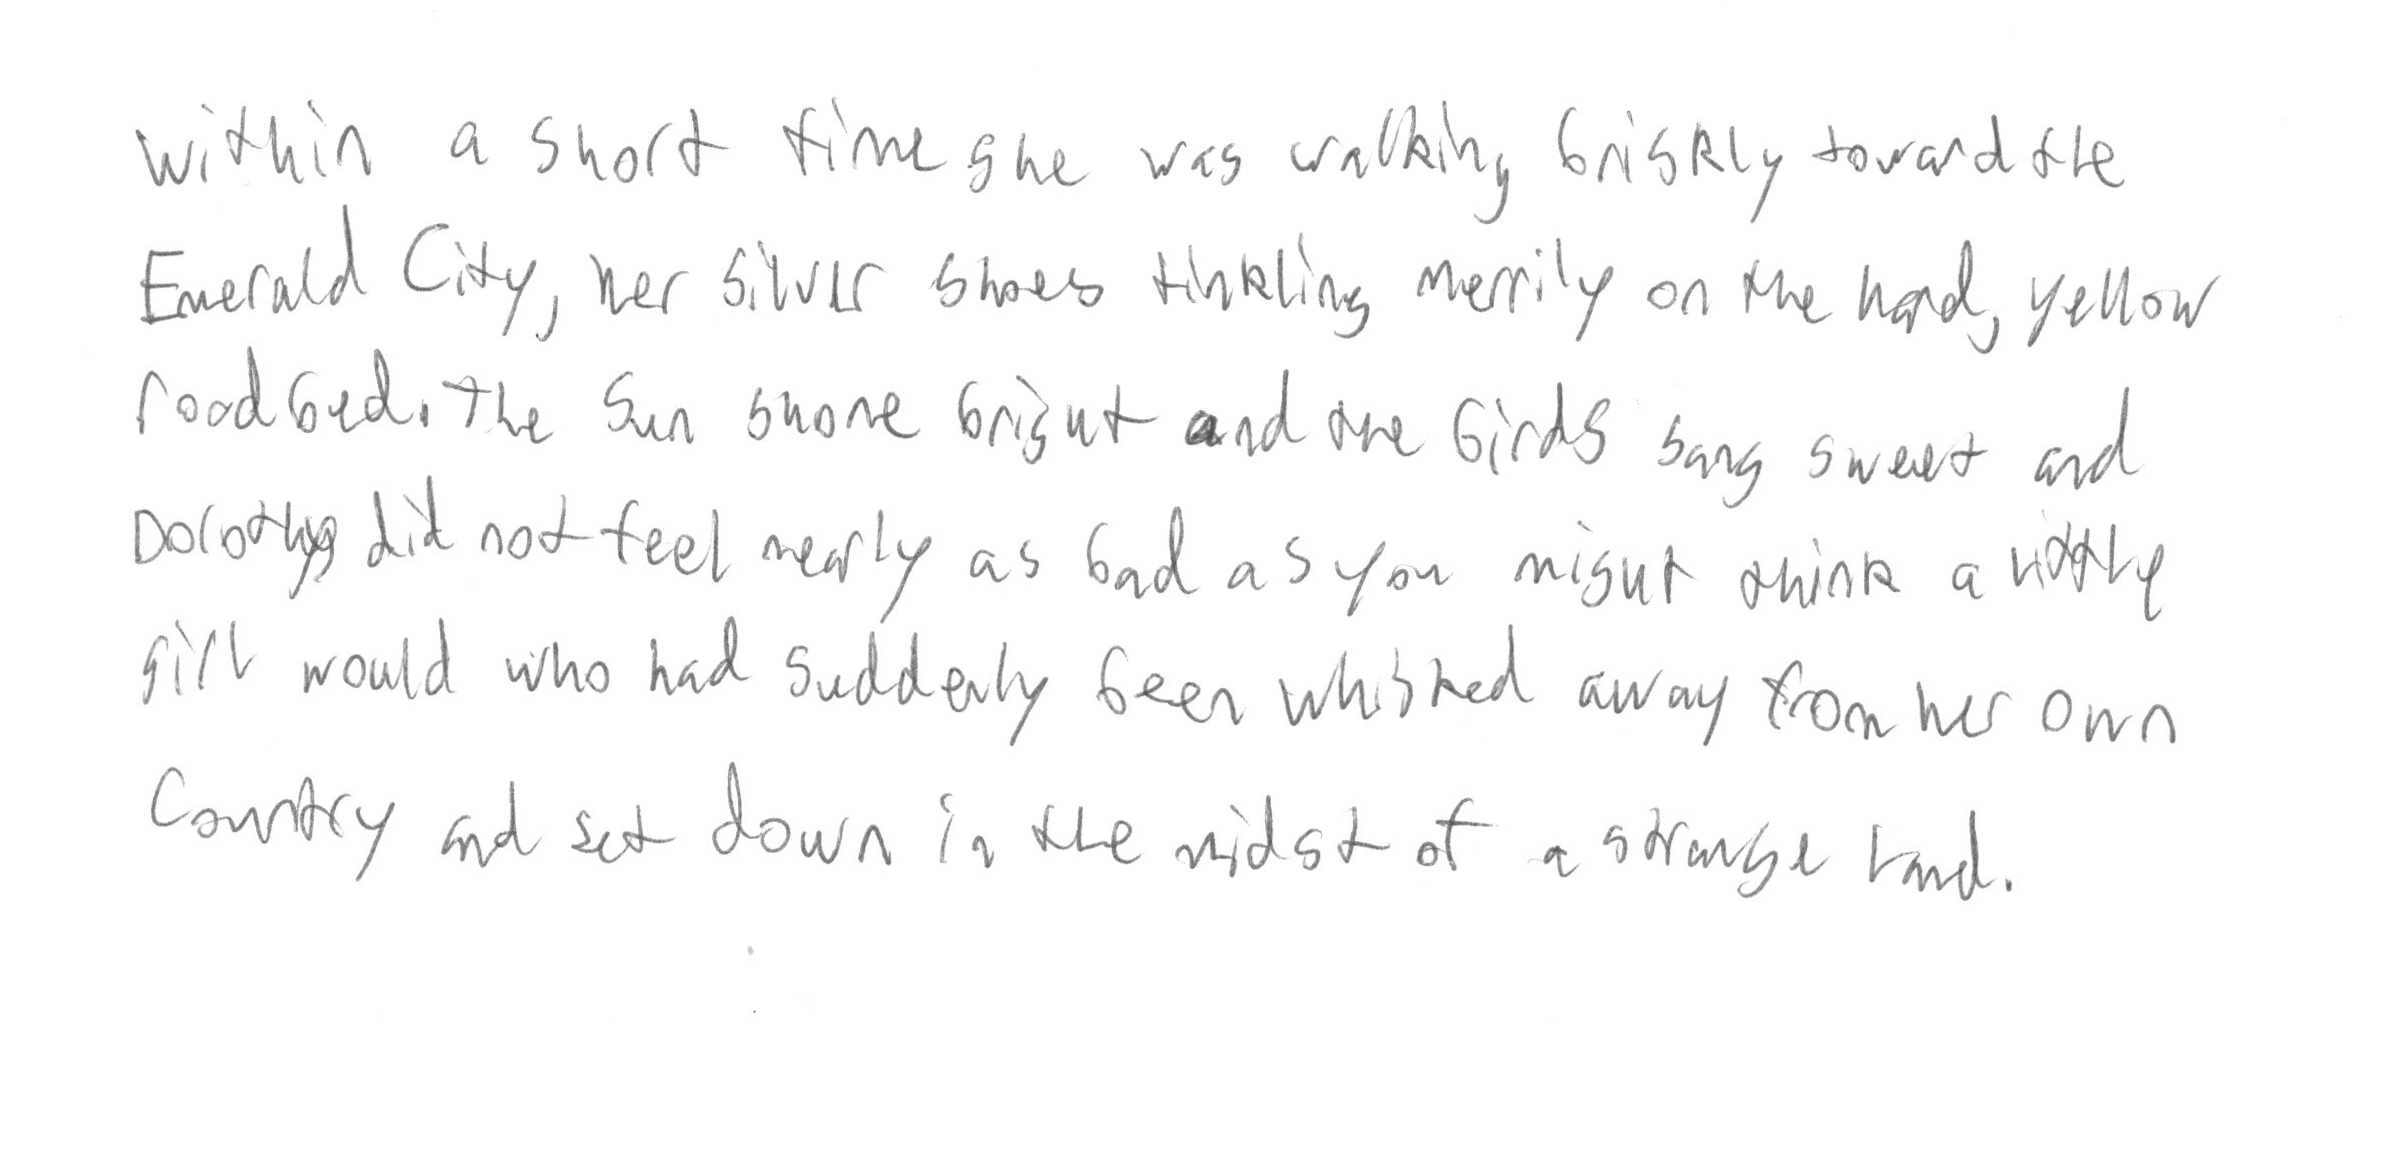 within a short time she was walking briskly toward the
Emerald City, her silver shoes tinkling merrily on the hard, yellow
roadbed. The sun shone bright and the birds sang sweet and
Dorothy did not feel nearly as bad as you might think a little
girl would who had suddenly been whisked away from her own
Country and set down in the midst of a strange land.